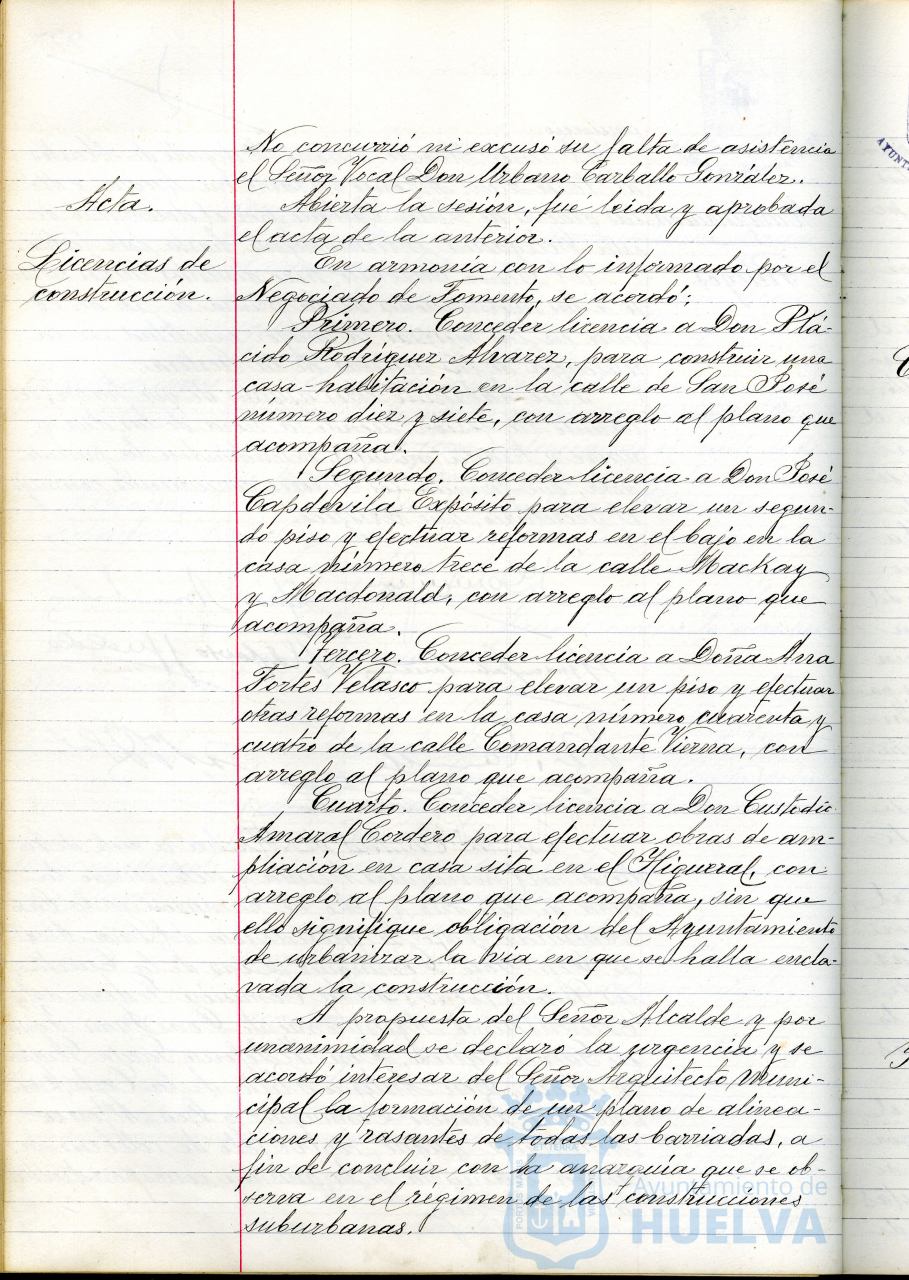 No concurrió ni excusó su falta de asistencia
el Señor Vocal Don Urbano Carballo González.
Acta.
Abierta la sesión, fué leida y aprobada
el acta de la anterior.
Licencias de
construcción.
En armonía con lo informado por el
Negociado de Fomento, se acordó:
Primero. Conceder licencia a Don Plá-
cido Rodríguez Alvarez, para construir una
casa-habitación en la calle de San José
número diez y siete, con arreglo al plano que
acompaña.
Segundo. Conceder licencia a Don José
Capdevila Expósito para elevar un segun-
do piso y efectuar reformas en el bajo en la
casa número trece de la calle MacKay
y Macdonald, con arreglo al plano que
acompaña.
Tercero. Conceder licencia a Doña Ana
Fortes Velasco para elevar un piso y efectuar
otras reformas en la casa número cuarenta y
cuatro de la calle Comandante Vierna, con
arreglo al plano que acompaña.
Cuarto. Conceder licencia a Don Custodio
Amaral Cordero para efectuar obras de am-
pliación en casa sita en el Higueral, con
arreglo al plano que acompaña, sin que
ello signifique obligación del Ayuntamiento
de urbanizar la vía en que se halla encla-
vada la construcción.
A propuesta del Señor Alcalde y por
unanimidad se declaró la urgencia y se
acordó interesar del Señor Arquitecto Muni-
cipal la formación de un plano de alinea-
ciones y rasantes de todas las barriadas, a
fin de concluir con la anarquía que se ob-
serva en el régimen de las construcciones
suburbanas.
Ayuntamiento de
HUELVA